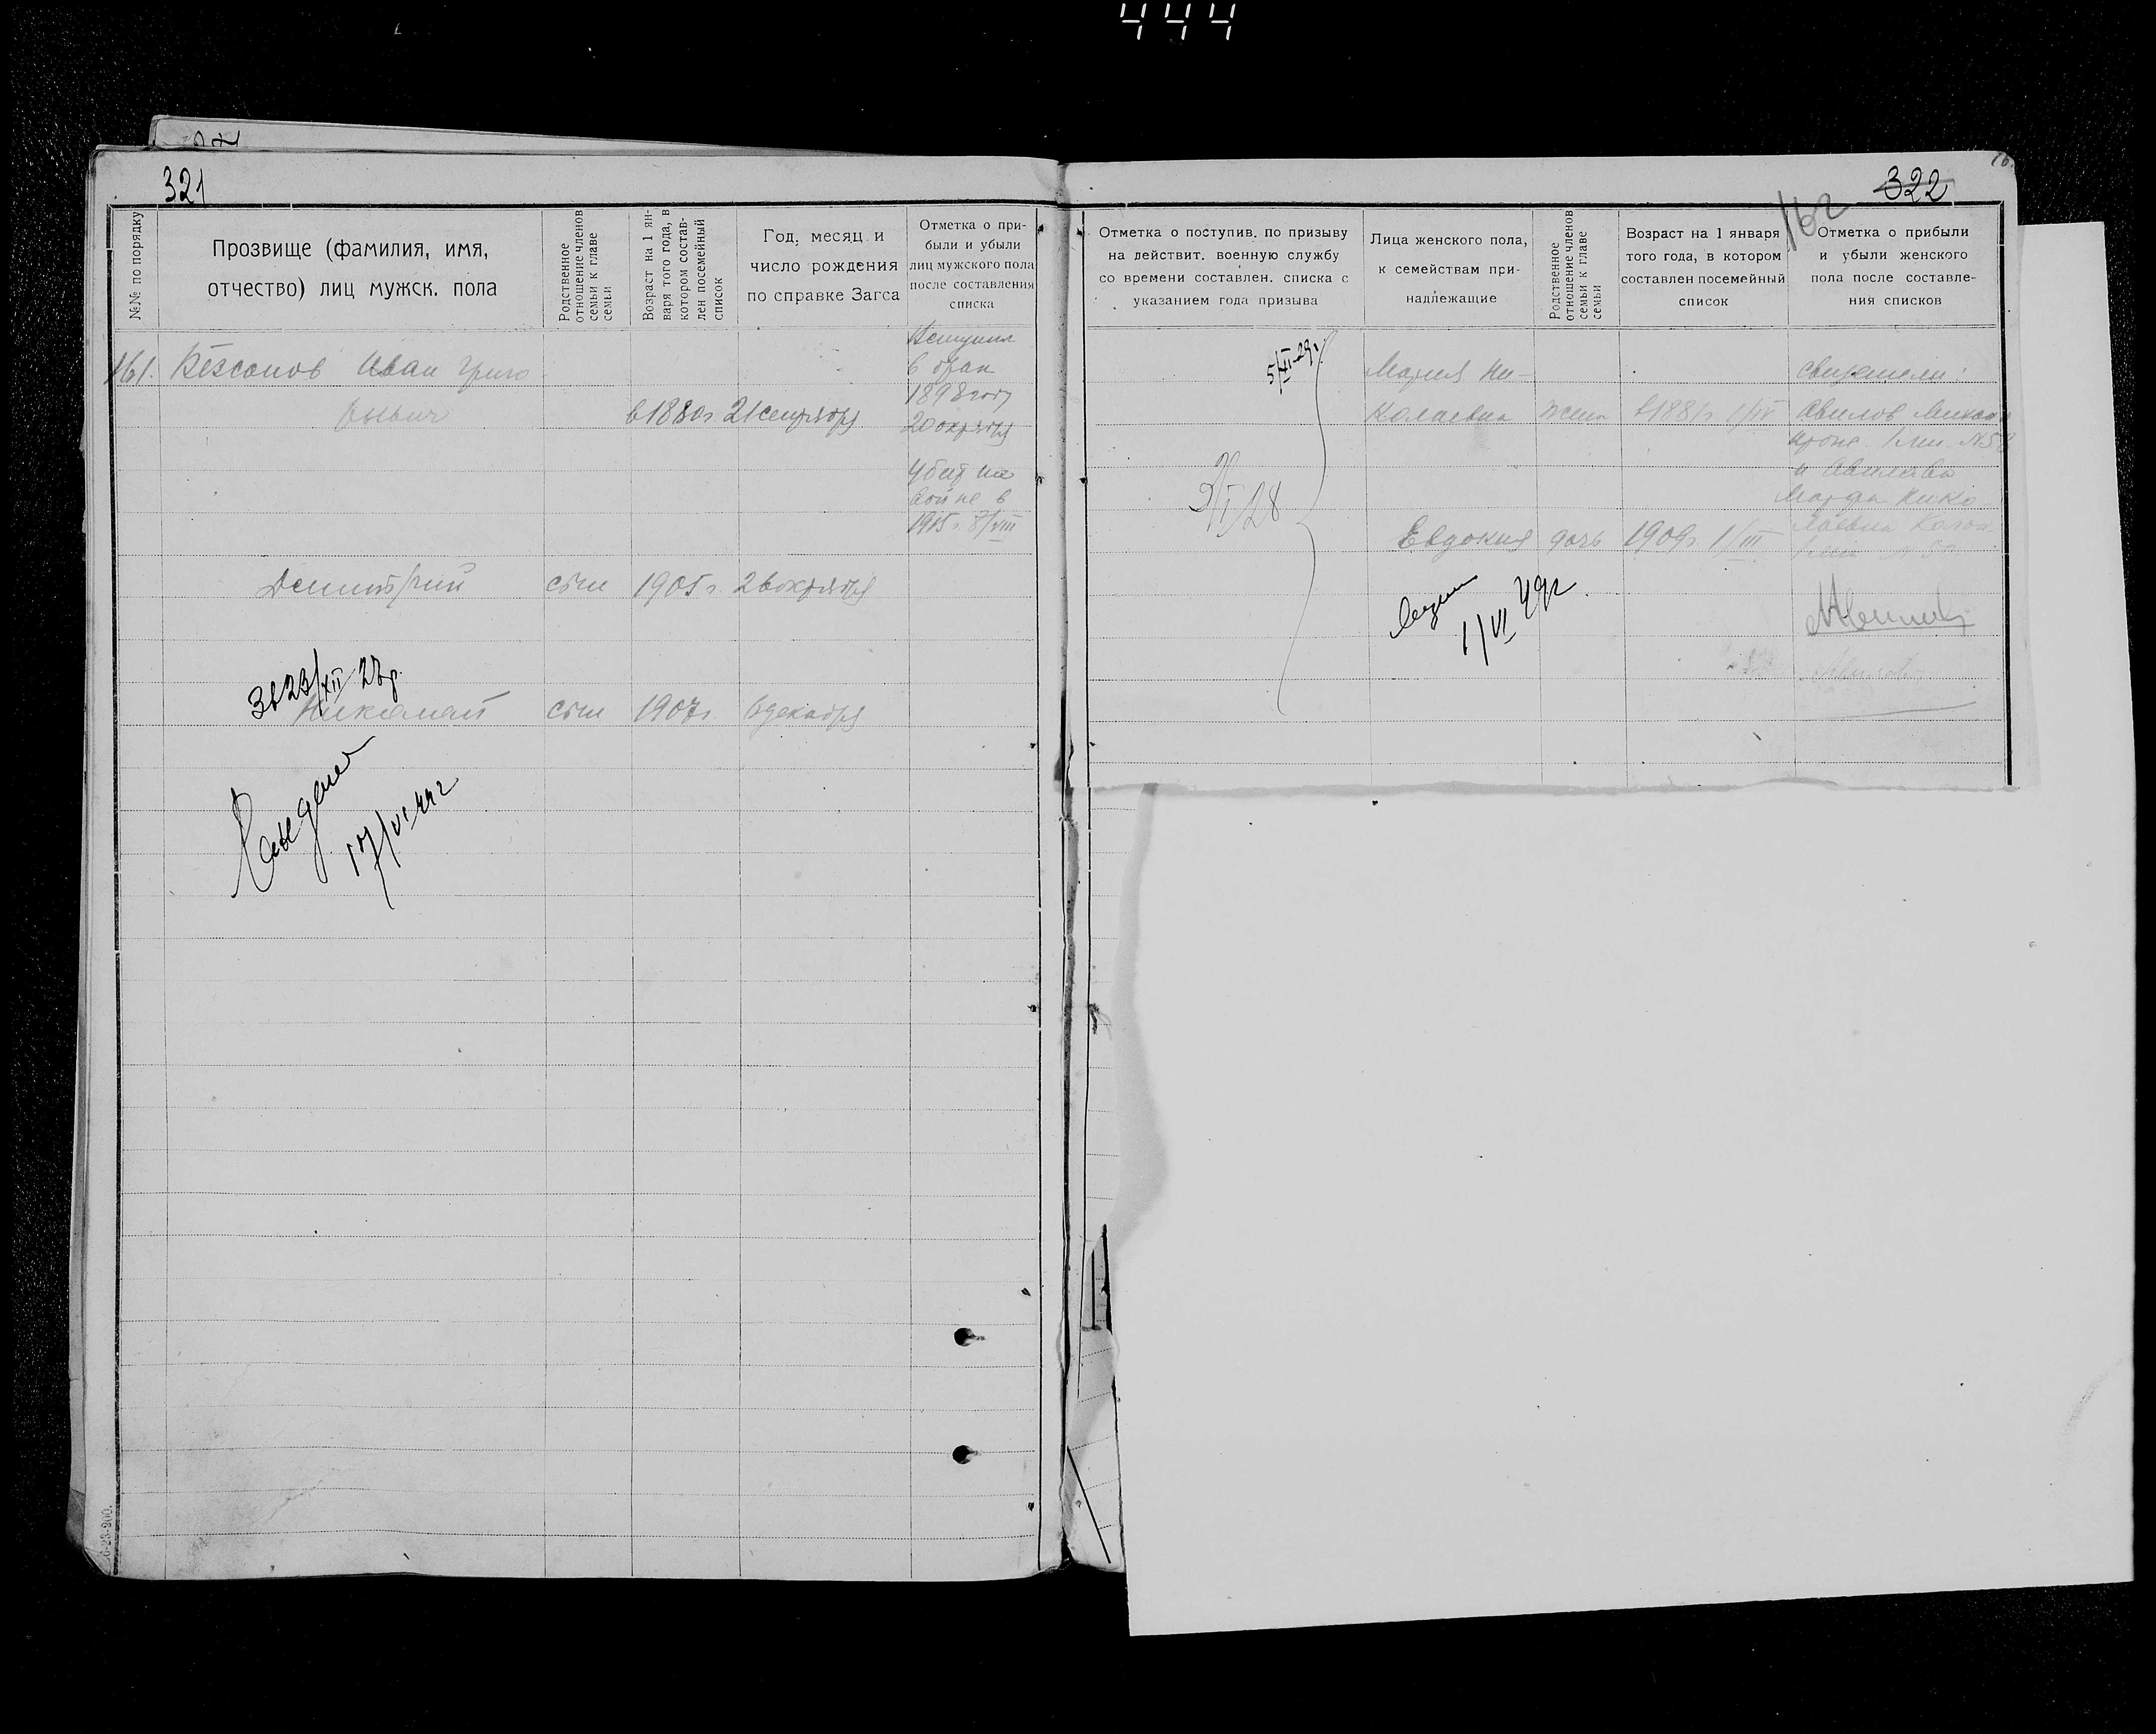 444
321
№№ по порядку
Прозвище (фамилия, имя,
отчество) лиц мужск. пола
Родственное
отношение членов
семьи к главе
семьи
Возраст на 1 ян-
варя того года, в
котором состав-
лен посемейный
список
Год, месяц и
число рождения
по справке Загса
Отметка о при-
были и убыли
лиц мужского пола
после составления
списка
161. Бессонов Иван Григо
рьевич
в 1880 г. 21 сентября
Вступил
в брак
1898 году
20 октября
Убит на
войне в
1915 г. 8/VIII
Дмитрий сын 1905 г. 26 октября
23/XII 27г.
Николай сын 1907 г. 6 декабря
17/VI 44г
6-23-200.
322
162
Отметка о поступив. по призыву
на действит. военную службу
со времени составлен. списка с
указанием года призыва
Лица женского пола,
к семействам при-
надлежащие
Родственное
отношение членов
семьи к главе
семьи
Возраст на 1 января
того года, в котором
составлен посемейный
список
Отметка о прибыли
и убыли женского
пола после составле-
ния списков
5/XI-29г.
Мария Ни-
колаевна жена в 1881 г. 1/IV
свидетели:
Авилов
и Авилова
Марфа Нико
лаевна
9/I 28
Евдокия дочь 1909 г. 1/III
1/VI 49г.